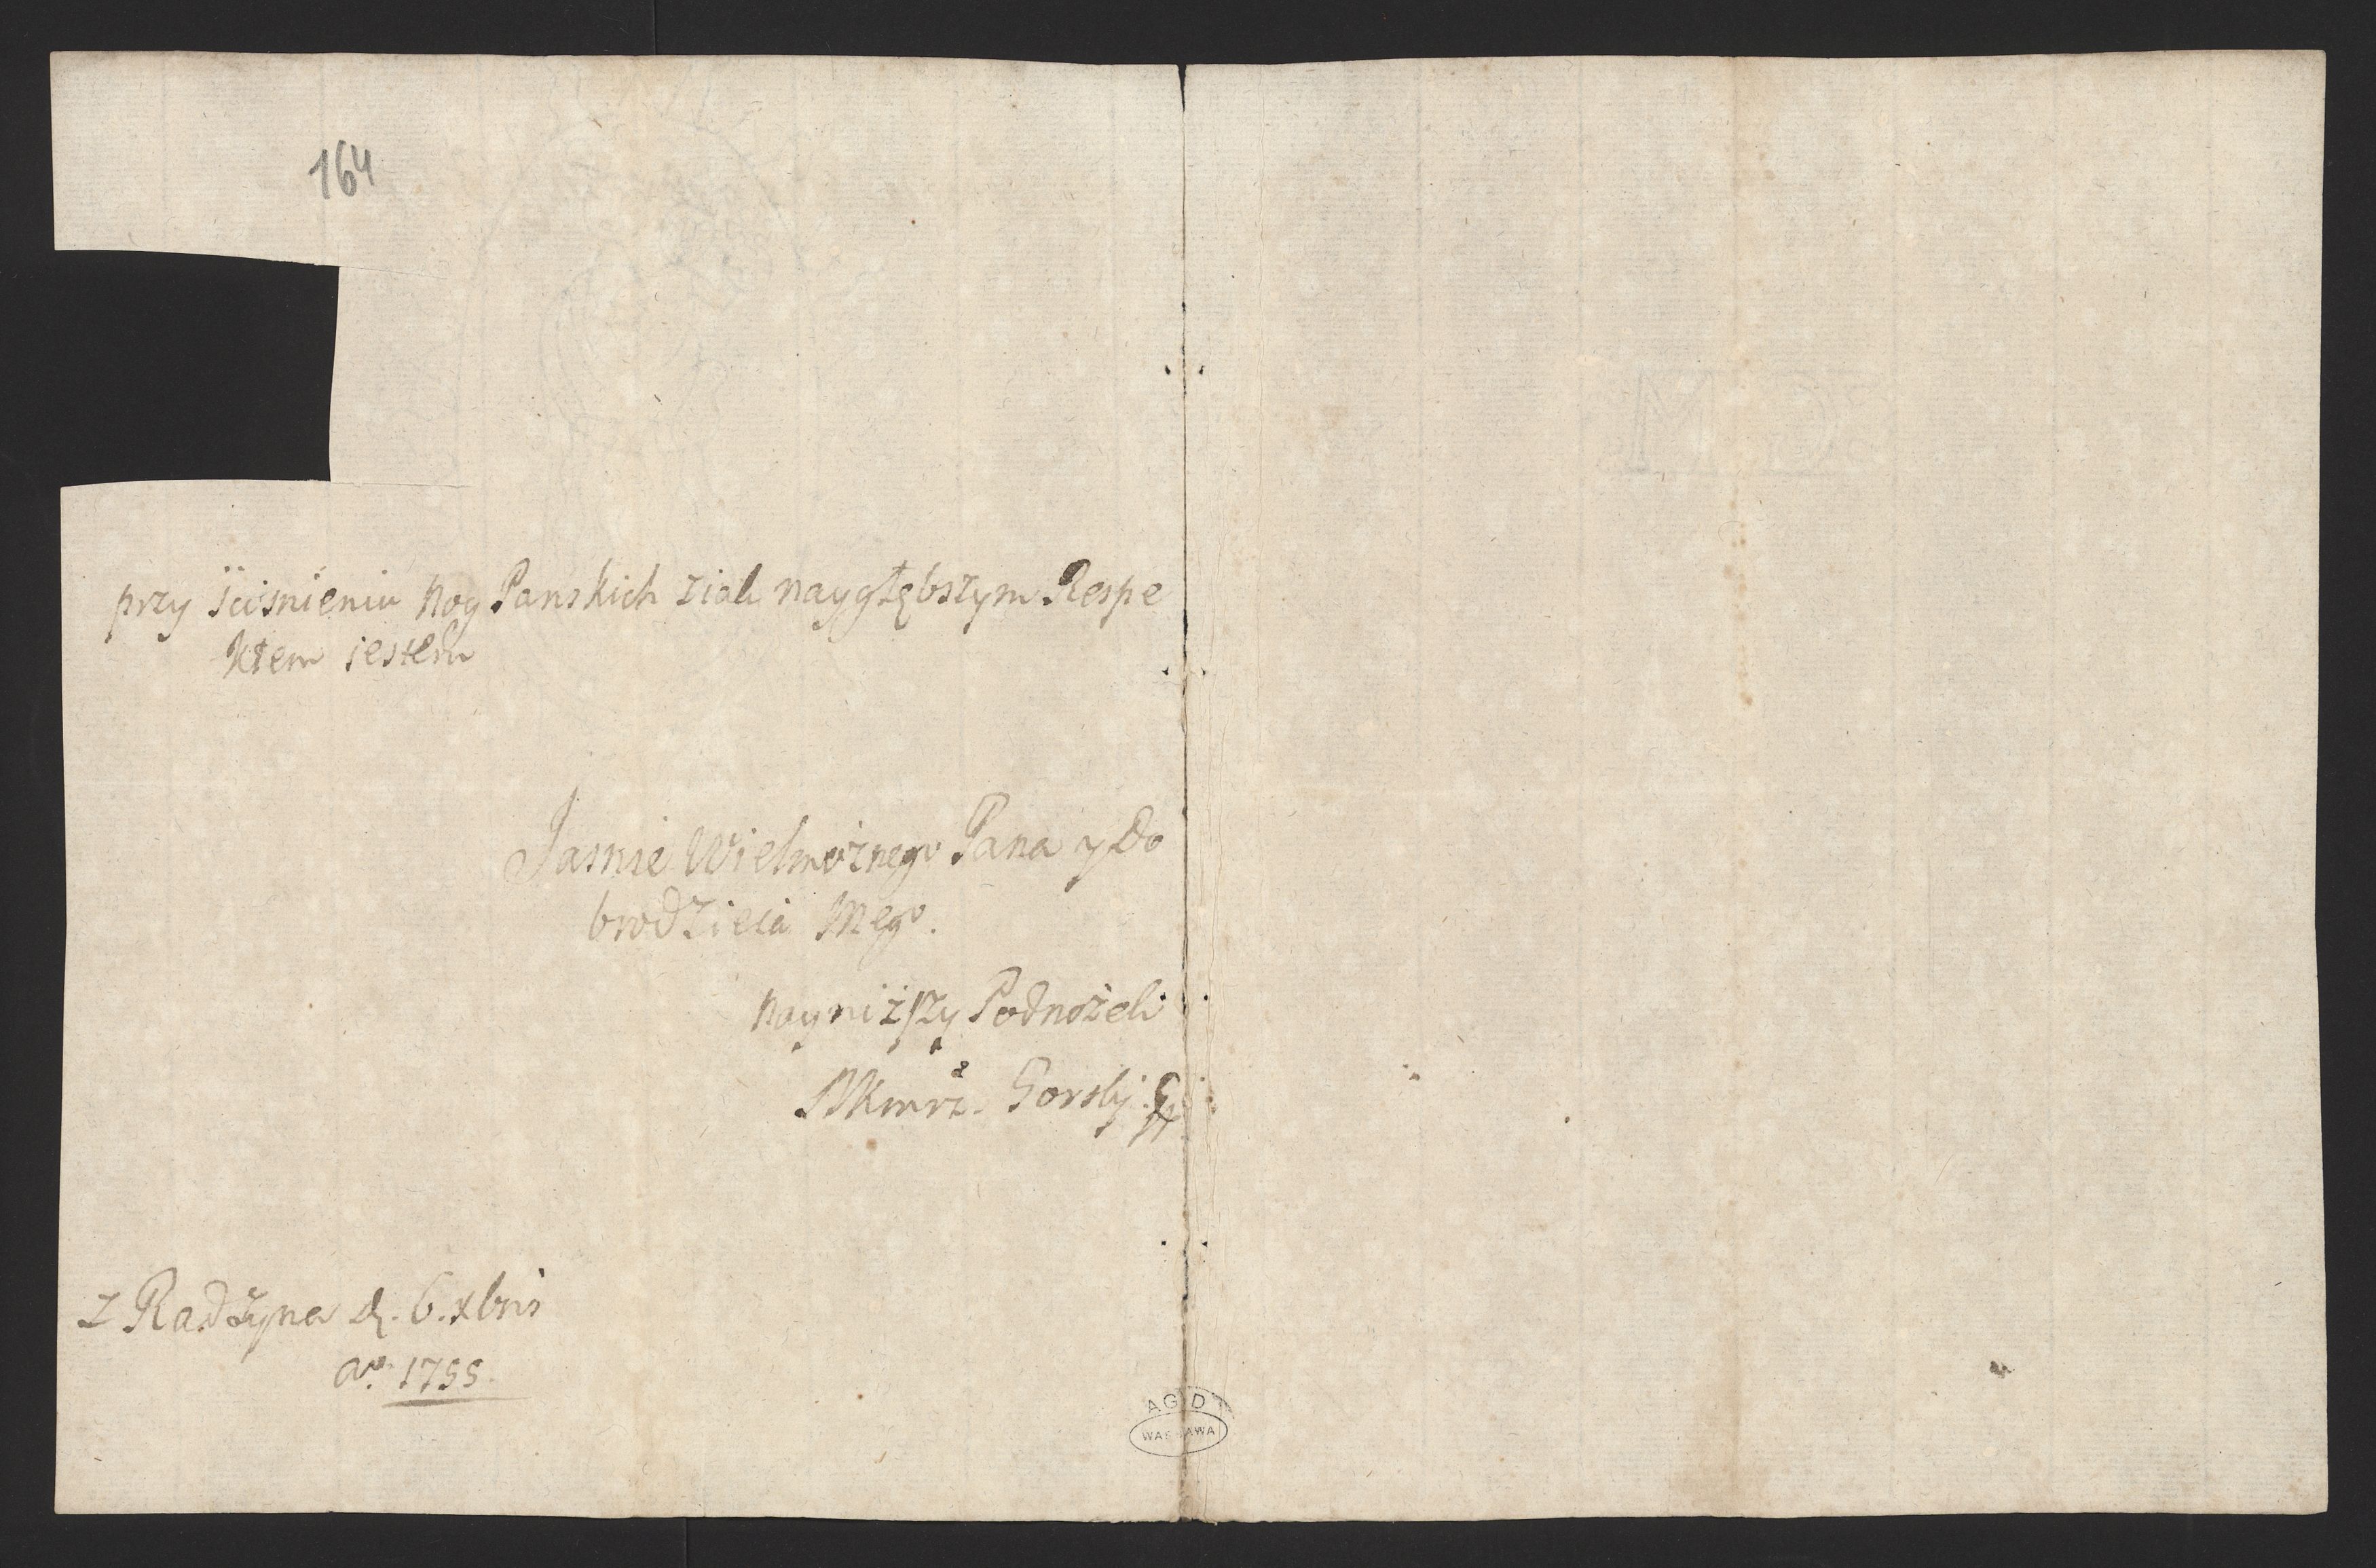 164
przy sciśnieniu Nog Panskich ziak naygłębszym Respe
ktem iestem
Jasnie Wielmożnego Pana y Do
brodzieia Mego.
Nayniższy Podnożek
Gorsky
z Radzyna d. 6. xbris
Ao. 1755
AGAD
WARSZAWA